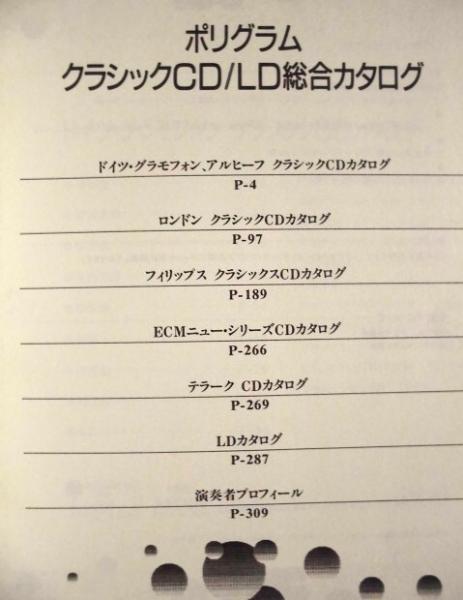 ポリグラム
クラシックCD/LD総合カタログ
ドイツ・グラモフォン、アルヒーフ クラシックCDカタログ
P-4
ロンドン クラシックCDカタログ
P-97
フィリップス クラシックスCDカタログ
P-189
ECMニュー・シリーズCDカタログ
P-266
テラーク CDカタログ
P-269
LDカタログ
P-287
演奏者プロフィール
P-309